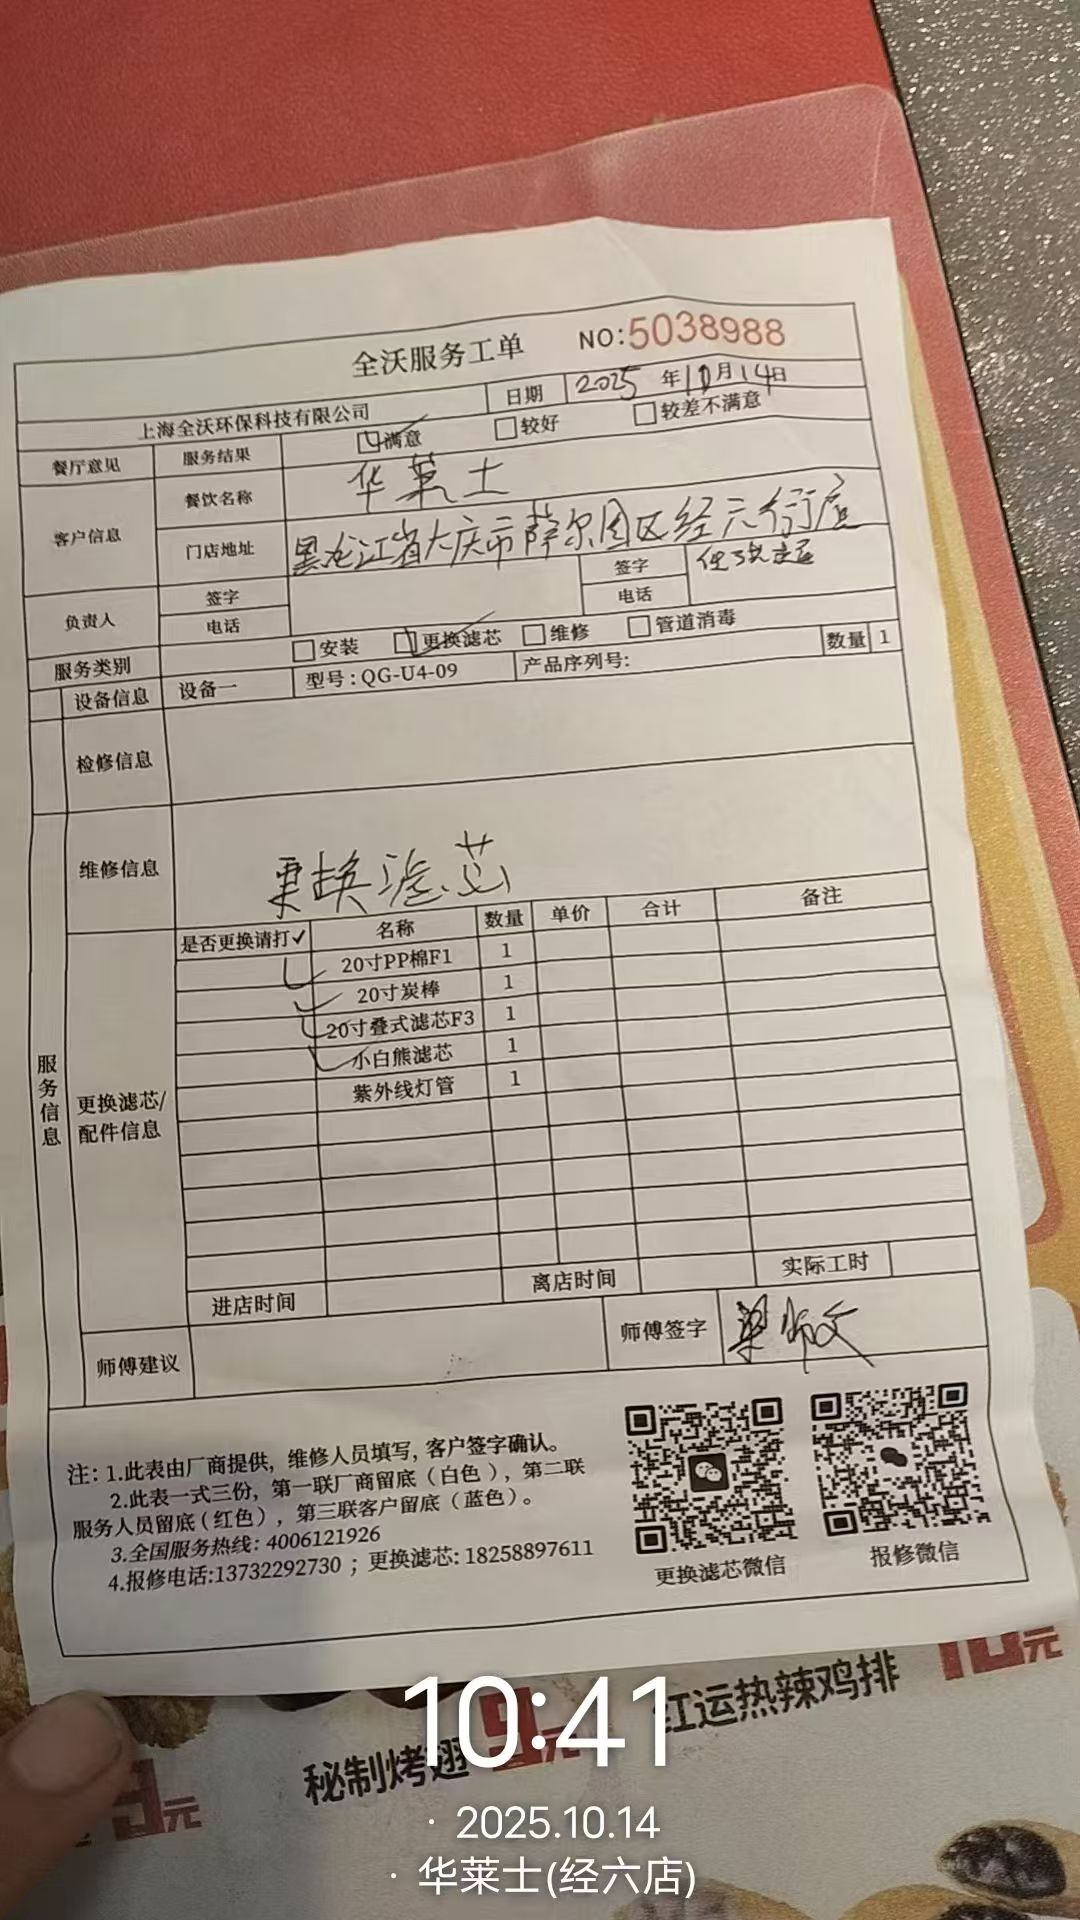 全沃服务工单 NO:5038988
上海全沃环保科技有限公司 日期 2025年10月14日
餐厅意见 服务结果 满意 较好 较差不满意
客户信息 餐饮名称 华莱士
门店地址 黑龙江省大庆市萨尔图区经六街店
负责人 签字 签字
电话 电话
服务类别 安装 更换滤芯 维修 管道消毒
设备信息 设备一 型号:QG-U4-09 产品序列号: 数量 1
检修信息
维修信息 更换滤芯
服务信息
更换滤芯/
配件信息
是否更换请打✓ 名称 数量 单价 合计 备注
20寸PP棉F1 1
20寸炭棒 1
20寸叠式滤芯F3 1
小白熊滤芯 1
紫外线灯管 1
进店时间 离店时间 实际工时
师傅建议 师傅签字
注: 1.此表由厂商提供, 维修人员填写, 客户签字确认。
2.此表一式三份, 第一联厂商留底(白色), 第二联
服务人员留底(红色), 第三联客户留底(蓝色)。
3.全国服务热线: 4006121926
4.报修电话:13732292730 ; 更换滤芯: 18258897611
更换滤芯微信 报修微信
10元
红运热辣鸡排
秘制烤翅 9元
9元
10:41
· 2025.10.14
· 华莱士(经六店)